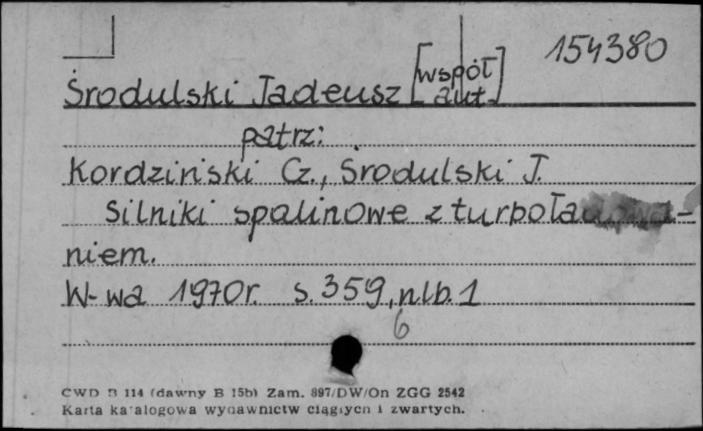 154380
Środulski Tadeusz [współ aut.]
patrz:
Kordziński Cz., Środulski T.
Silniki spalinowe z turbołado-
niem.
W-wa 1970r. s. 359, nlb. 1
6
CWD B 114 (dawny B 15b) Zam. 897/DW/On ZGG 2542
Karta katalogowa wydawnictw ciągłych i zwartych.